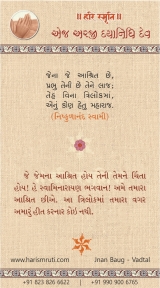 ॥ હરિ સ્મૃતિ ॥
એજ અરજી દયાનિધિ દેવ
જેના જે આશ્રિત છે,
પ્રભુ તેની છે તેને લાજ;
તેહ વિના ત્રિલોકમાં,
એનું કોણ હેતુ મહારાજ.
(નિષ્કુળાનંદ સ્વામી)
જે જેમના આશ્રિત હોય તેની તેમને ચિંતા
હોય! હે સ્વામિનારાયણ ભગવાન! અમે તમારા
આશ્રિત છીએ. આ ત્રિલોકમાં તમારા વગર
અમારું હીત કરનાર કોઇ નથી.
www.harismruti.com
Jnan Baug - Vadtal
+91 823 826 6622
+91 990 900 6765